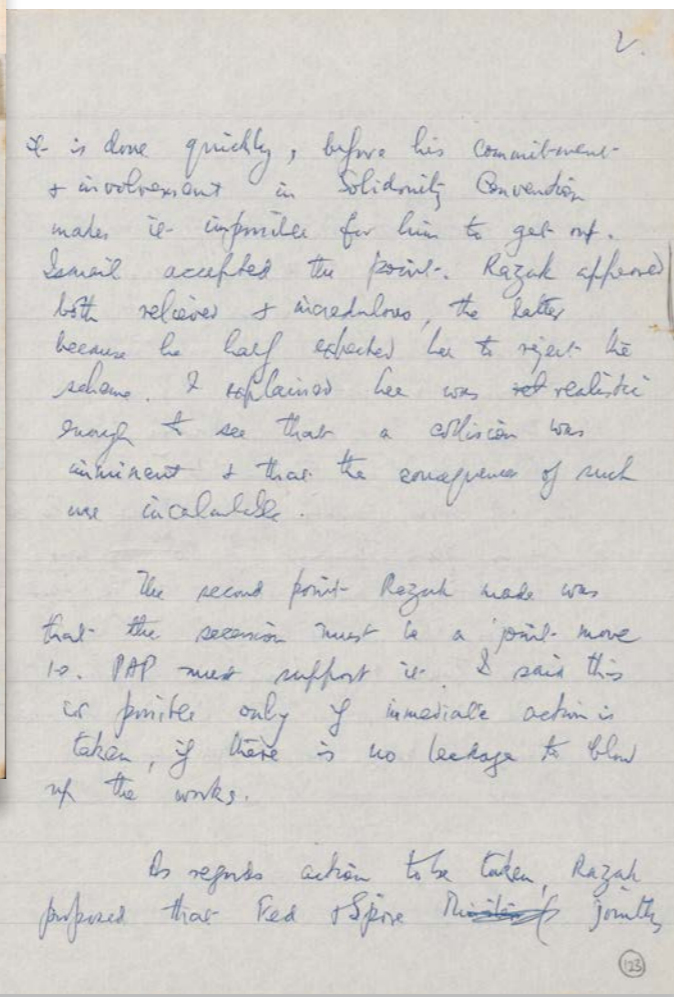 2.
it is done quickly, before his commitment
& involvement in Solidarity Convention
makes it impossible for him to get out.
Ismail accepted the point. Razak appeared
both relieved & incredulous, the latter
because he half expected Lee to reject the
scheme. I explained Lee was realistic
enough to see that a collision was
imminent & that the consequences of such
were incalculable.
The second point Razak made was
that the secession must be a joint move
ie. PAP must support it. I said this
is possible only if immediate action is
taken, if there is no leakage to blow
up the works.
As regards action to be taken, Razak
proposed that Fed & Spore jointly
123